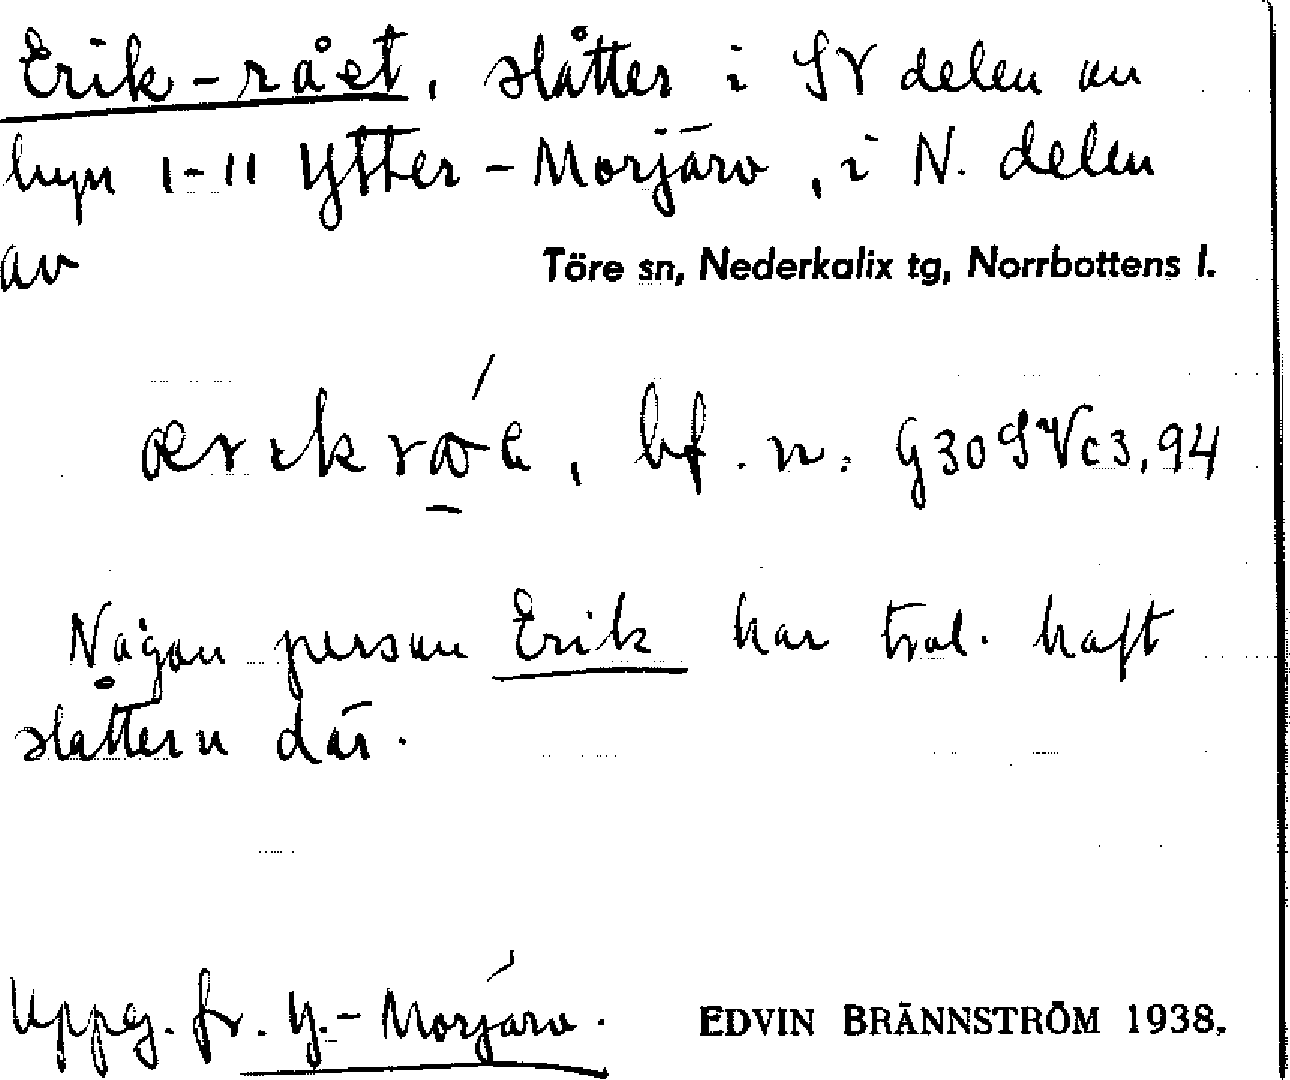 Erik-råët, slåtter i SV delen av
byn 1-11 Ytter-Morjärv, i N. delen
av Töre sn, Nederkalix tg, Norrbottens l.
bf. n. G30SVc3,94
Någon person Erik har trol. haft
slåttern där.
Uppg. fr. Y.-Morjärv. EDVIN BRÄNNSTRÖM 1938.